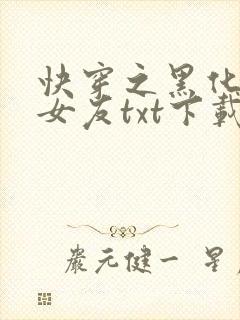 快穿之黑化
女友txt下載
嚴元健一 星